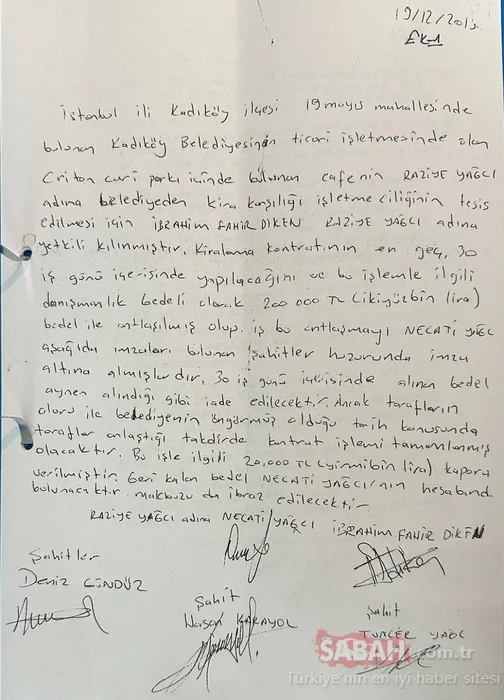 19/12/201
EK-1
İstanbul ili Kadıköy ilçesi 19 mayıs mahallesinde
bulunan Kadıköy Belediyesinin ticari işletmesinde olan
Criton curi parkı içinde bulunan cafenin RAZİYE YAĞCI
adına belediyeden kira karşılığı işletmeciliğinin tesis
edilmesi için İBRAHİM FAHİR DİKEN RAZİYE YAĞCI adına
yetkili kılınmıştır. Kiralama kontratının en geç, 30
iş günü içerisinde yapılacağını ve bu işlemle ilgili
danışmanlık bedeli olarak 200 000 TL (ikiyüzbin lira)
bedel ile antlaşılmış olup. iş bu antlaşmayı NECATİ YAĞC
aşağıda imzaları bulunan şahitler huzurunda imza
altına almışlardır. 30 iş günü içerisinde alınan bedel
aynen alındığı gibi iade edilecektir. Ancak tarafların
oluru ile belediyenin öngörmüş olduğu tarih konusunda
taraflar anlaştığı takdirde kontrat işlemi tamamlanmış
olacaktır. Bu işle ilgili 20,000 TL (yirmibin lira) kapora
verilmiştir. Geri kalan bedel NECATİ YAĞCI'nın hesabınd
bulunacaktır. makbuzu da ibraz edilecektir.
RAZİYE YAĞCI adına NECATİ YAĞCI İBRAHİM FAHİR DİKEN
Şahitler
Deniz GÜNDÜZ
Şahit
Hasan KARAYOL
Şahit
TUNCER YAĞC
SABAH.com.tr
Türkiye'nin en iyi haber sitesi